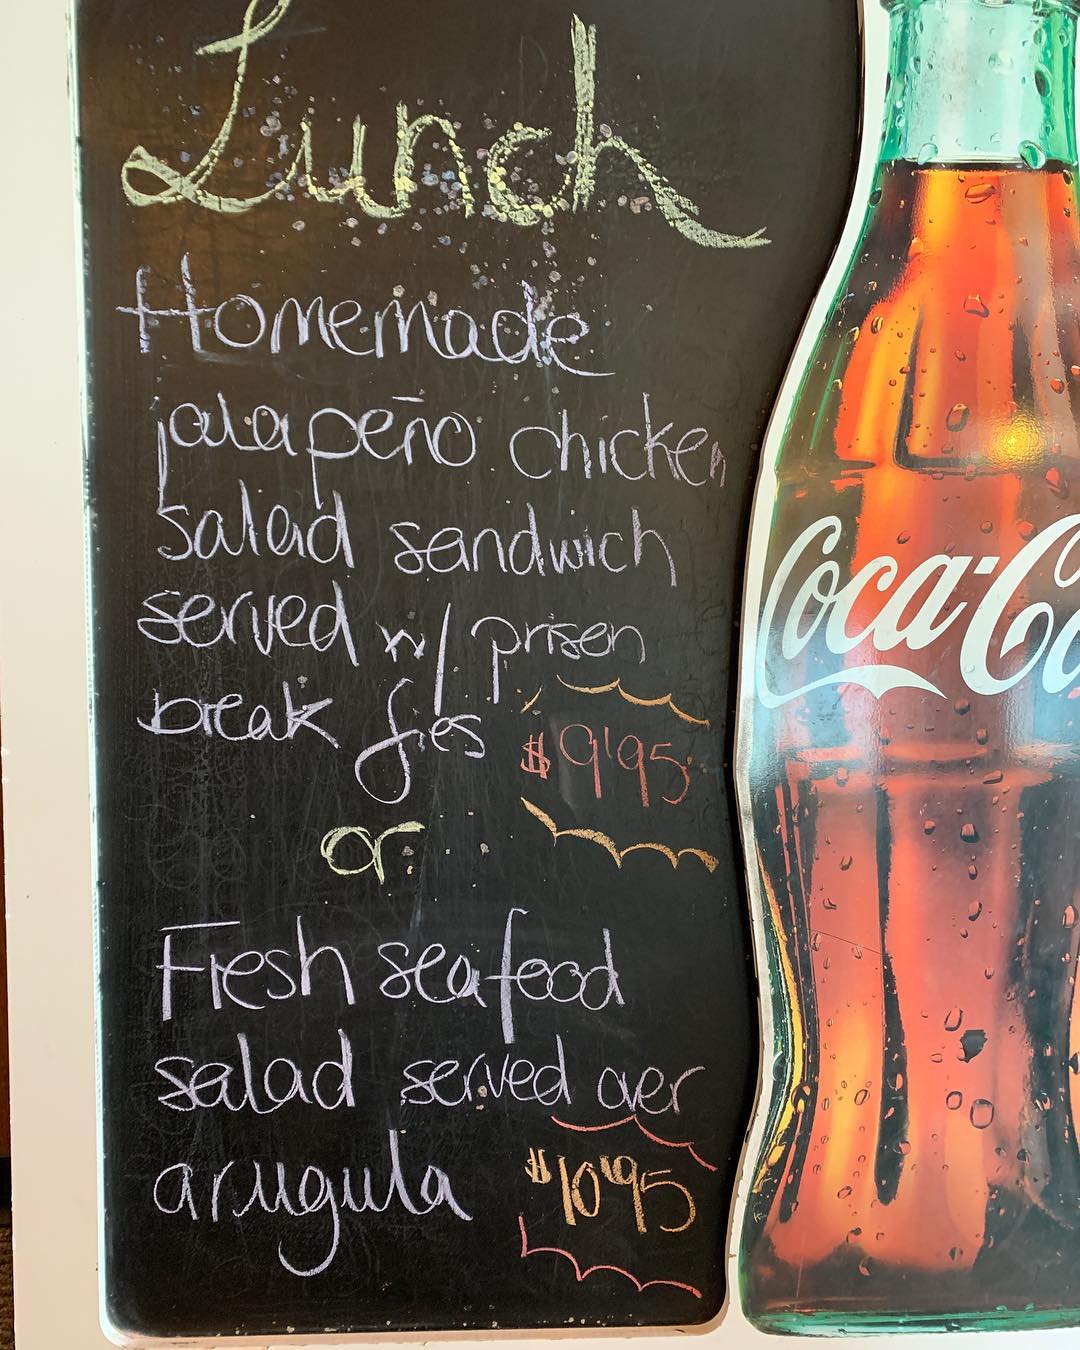 Lunch
Homemade
jalapeño chicken
salad sandwich
served w/ prison
break fries
$9.95
or
Fresh seafood
salad served over
arugula
$10.95
Coca-Co